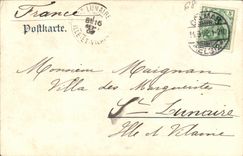 France
Postkarte.
LUNAIRE
Monsieur Maignan
Villa des Marguerites
St Lunaire
Ille et Vilaine